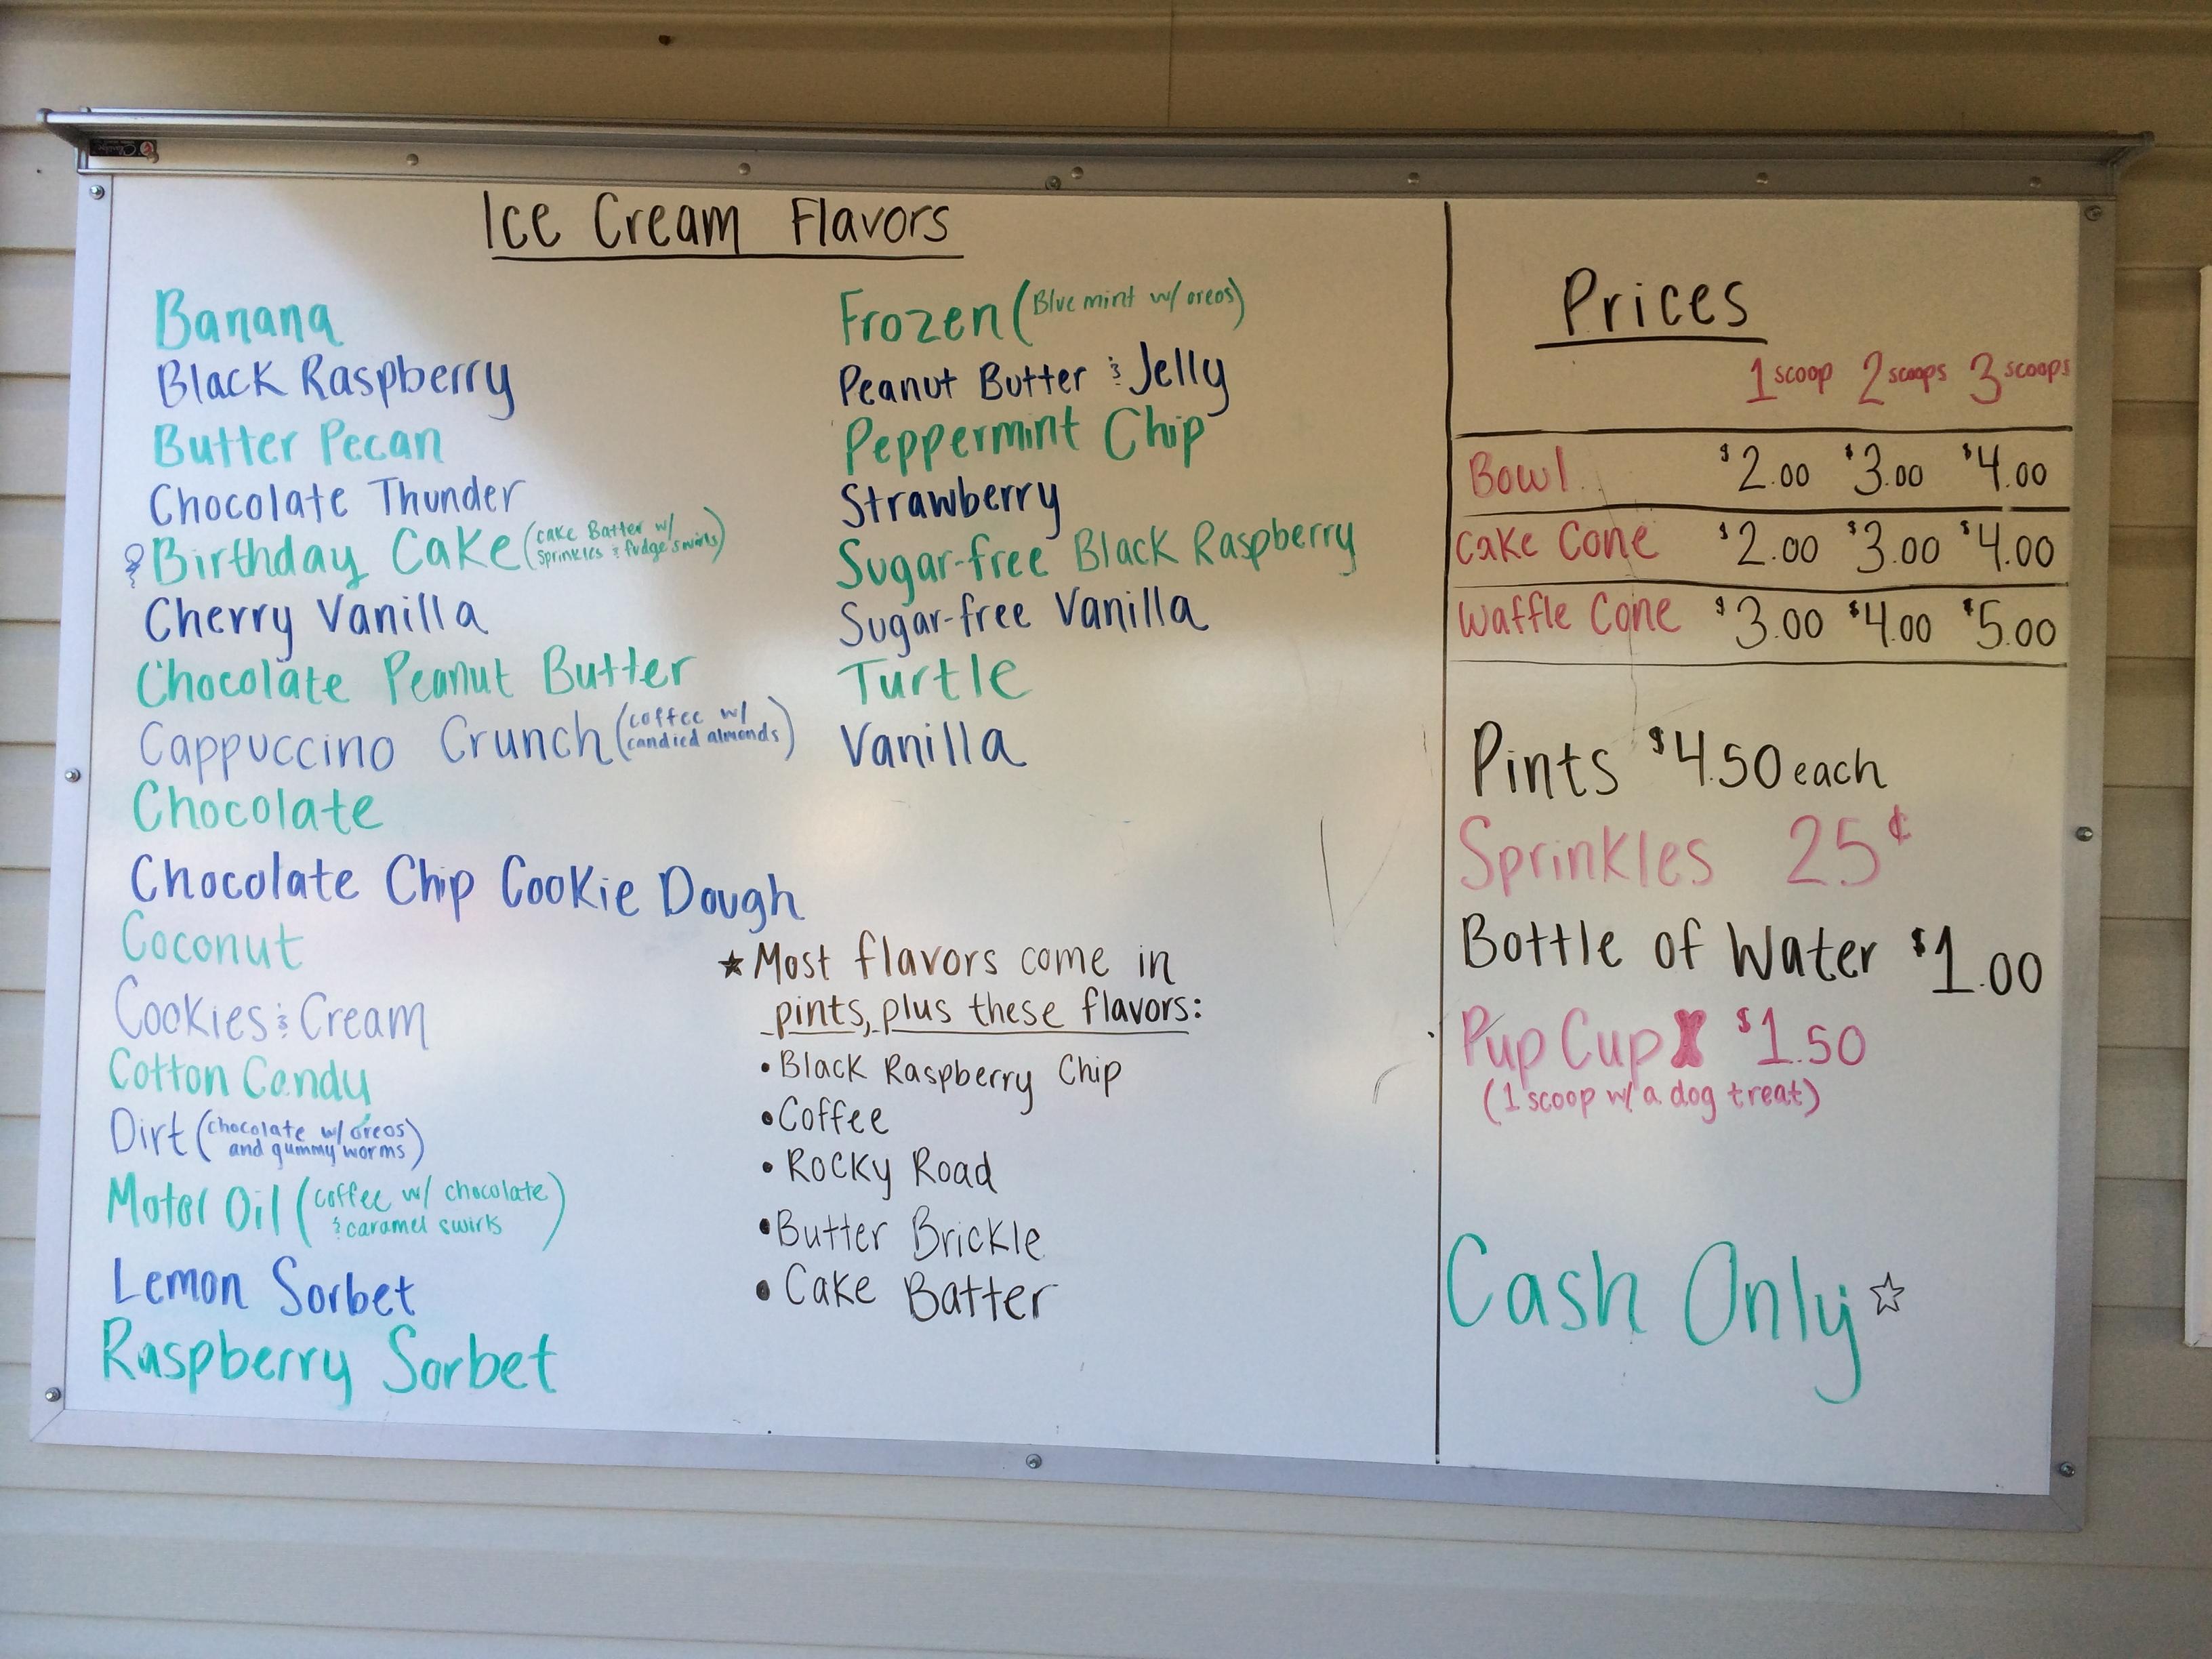 Ice Cream Flavors
Banana
Black Raspberry
Butter Pecan
Chocolate Thunder
Birthday Cake (cake Batter w/
sprinkles & fudge swirls)
Cherry Vanilla
Chocolate Peanut Butter
Cappuccino Crunch (coffee w/
candied almonds)
Chocolate
Chocolate Chip Cookie Dough
Coconut
Cookies & Cream
Cotton Candy
Dirt (chocolate w/ oreos
and gummy worms)
Motor Oil (coffee w/ chocolate
& caramel swirls)
Lemon Sorbet
Raspberry Sorbet
Frozen (Blue mint w/ oreos)
Peanut Butter & Jelly
Peppermint Chip
Strawberry
Sugar-free Black Raspberry
Sugar-free Vanilla
Turtle
Vanilla
★ Most flavors come in
pints, plus these flavors:
• Black Raspberry Chip
• Coffee
• Rocky Road
• Butter Brickle
• Cake Batter
Prices
1 scoop 2 scoops 3 scoops
Bowl $2.00 $3.00 $4.00
Cake Cone $2.00 $3.00 $4.00
Waffle Cone $3.00 $4.00 $5.00
Pints $4.50 each
Sprinkles 25¢
Bottle of Water $1.00
Pup Cup $1.50
(1 scoop w/ a dog treat)
Cash Only ☆